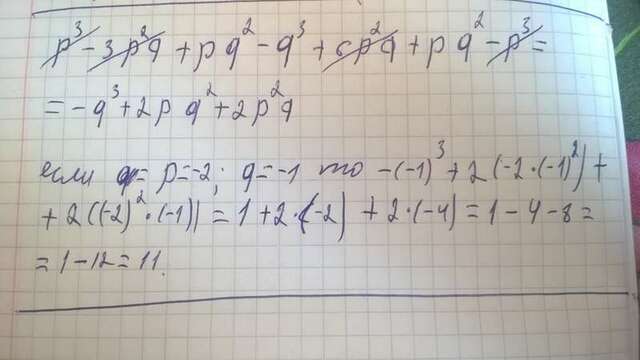 p³ - 3p²q + pq² - q³ + 5p²q + pq² - p³ =
= -q³ + 2pq² + 2p²q
если q= p=-2; q=-1 то -(-1)³ + 2(-2·(-1)²) +
+ 2((-2)²·(-1)) = 1 + 2·(-2) + 2·(-4) = 1 - 4 - 8 =
= 1 - 12 = 11.